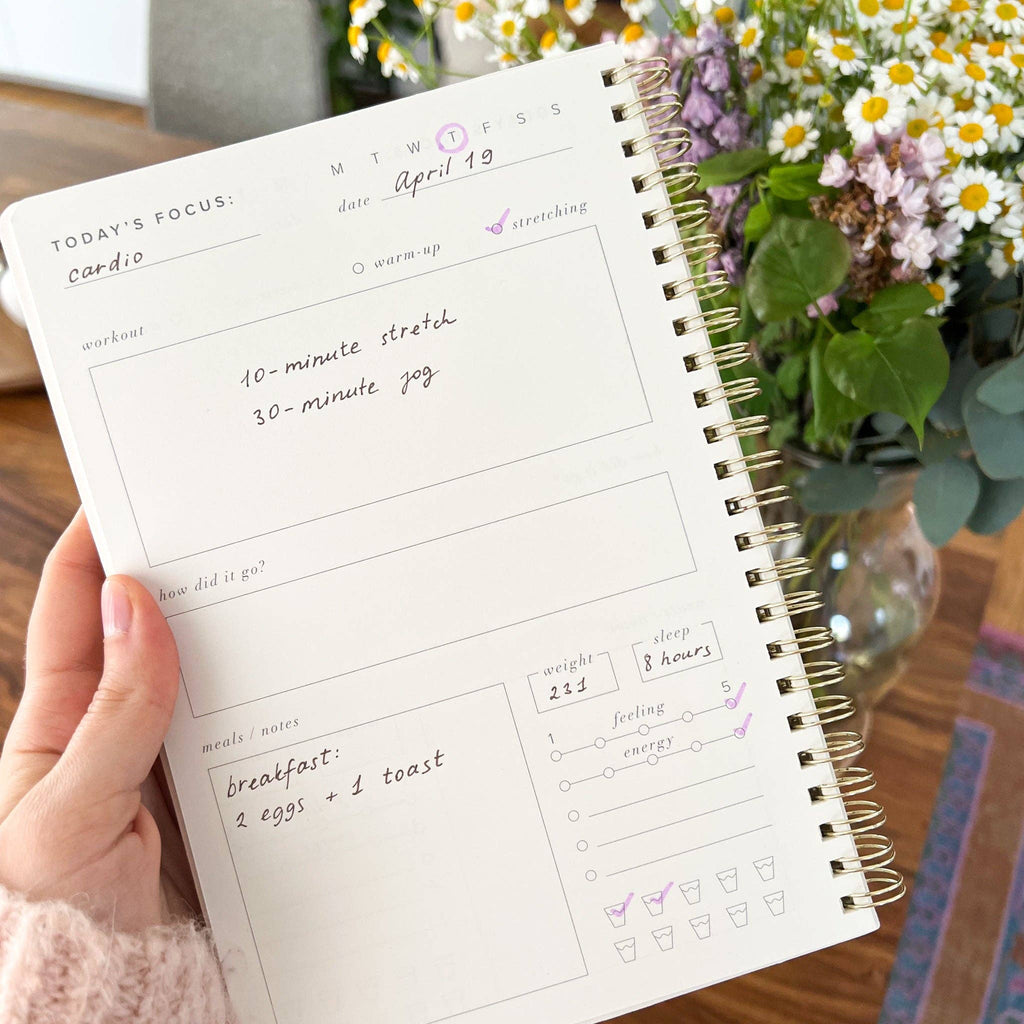 M T W T F S S
TODAY'S FOCUS:
date april 19
cardio
warm-up stretching
workout
10-minute stretch
30-minute jog
how did it go?
weight sleep
231 8 hours
meals / notes
feeling
1 5
energy
breakfast:
2 eggs + 1 toast